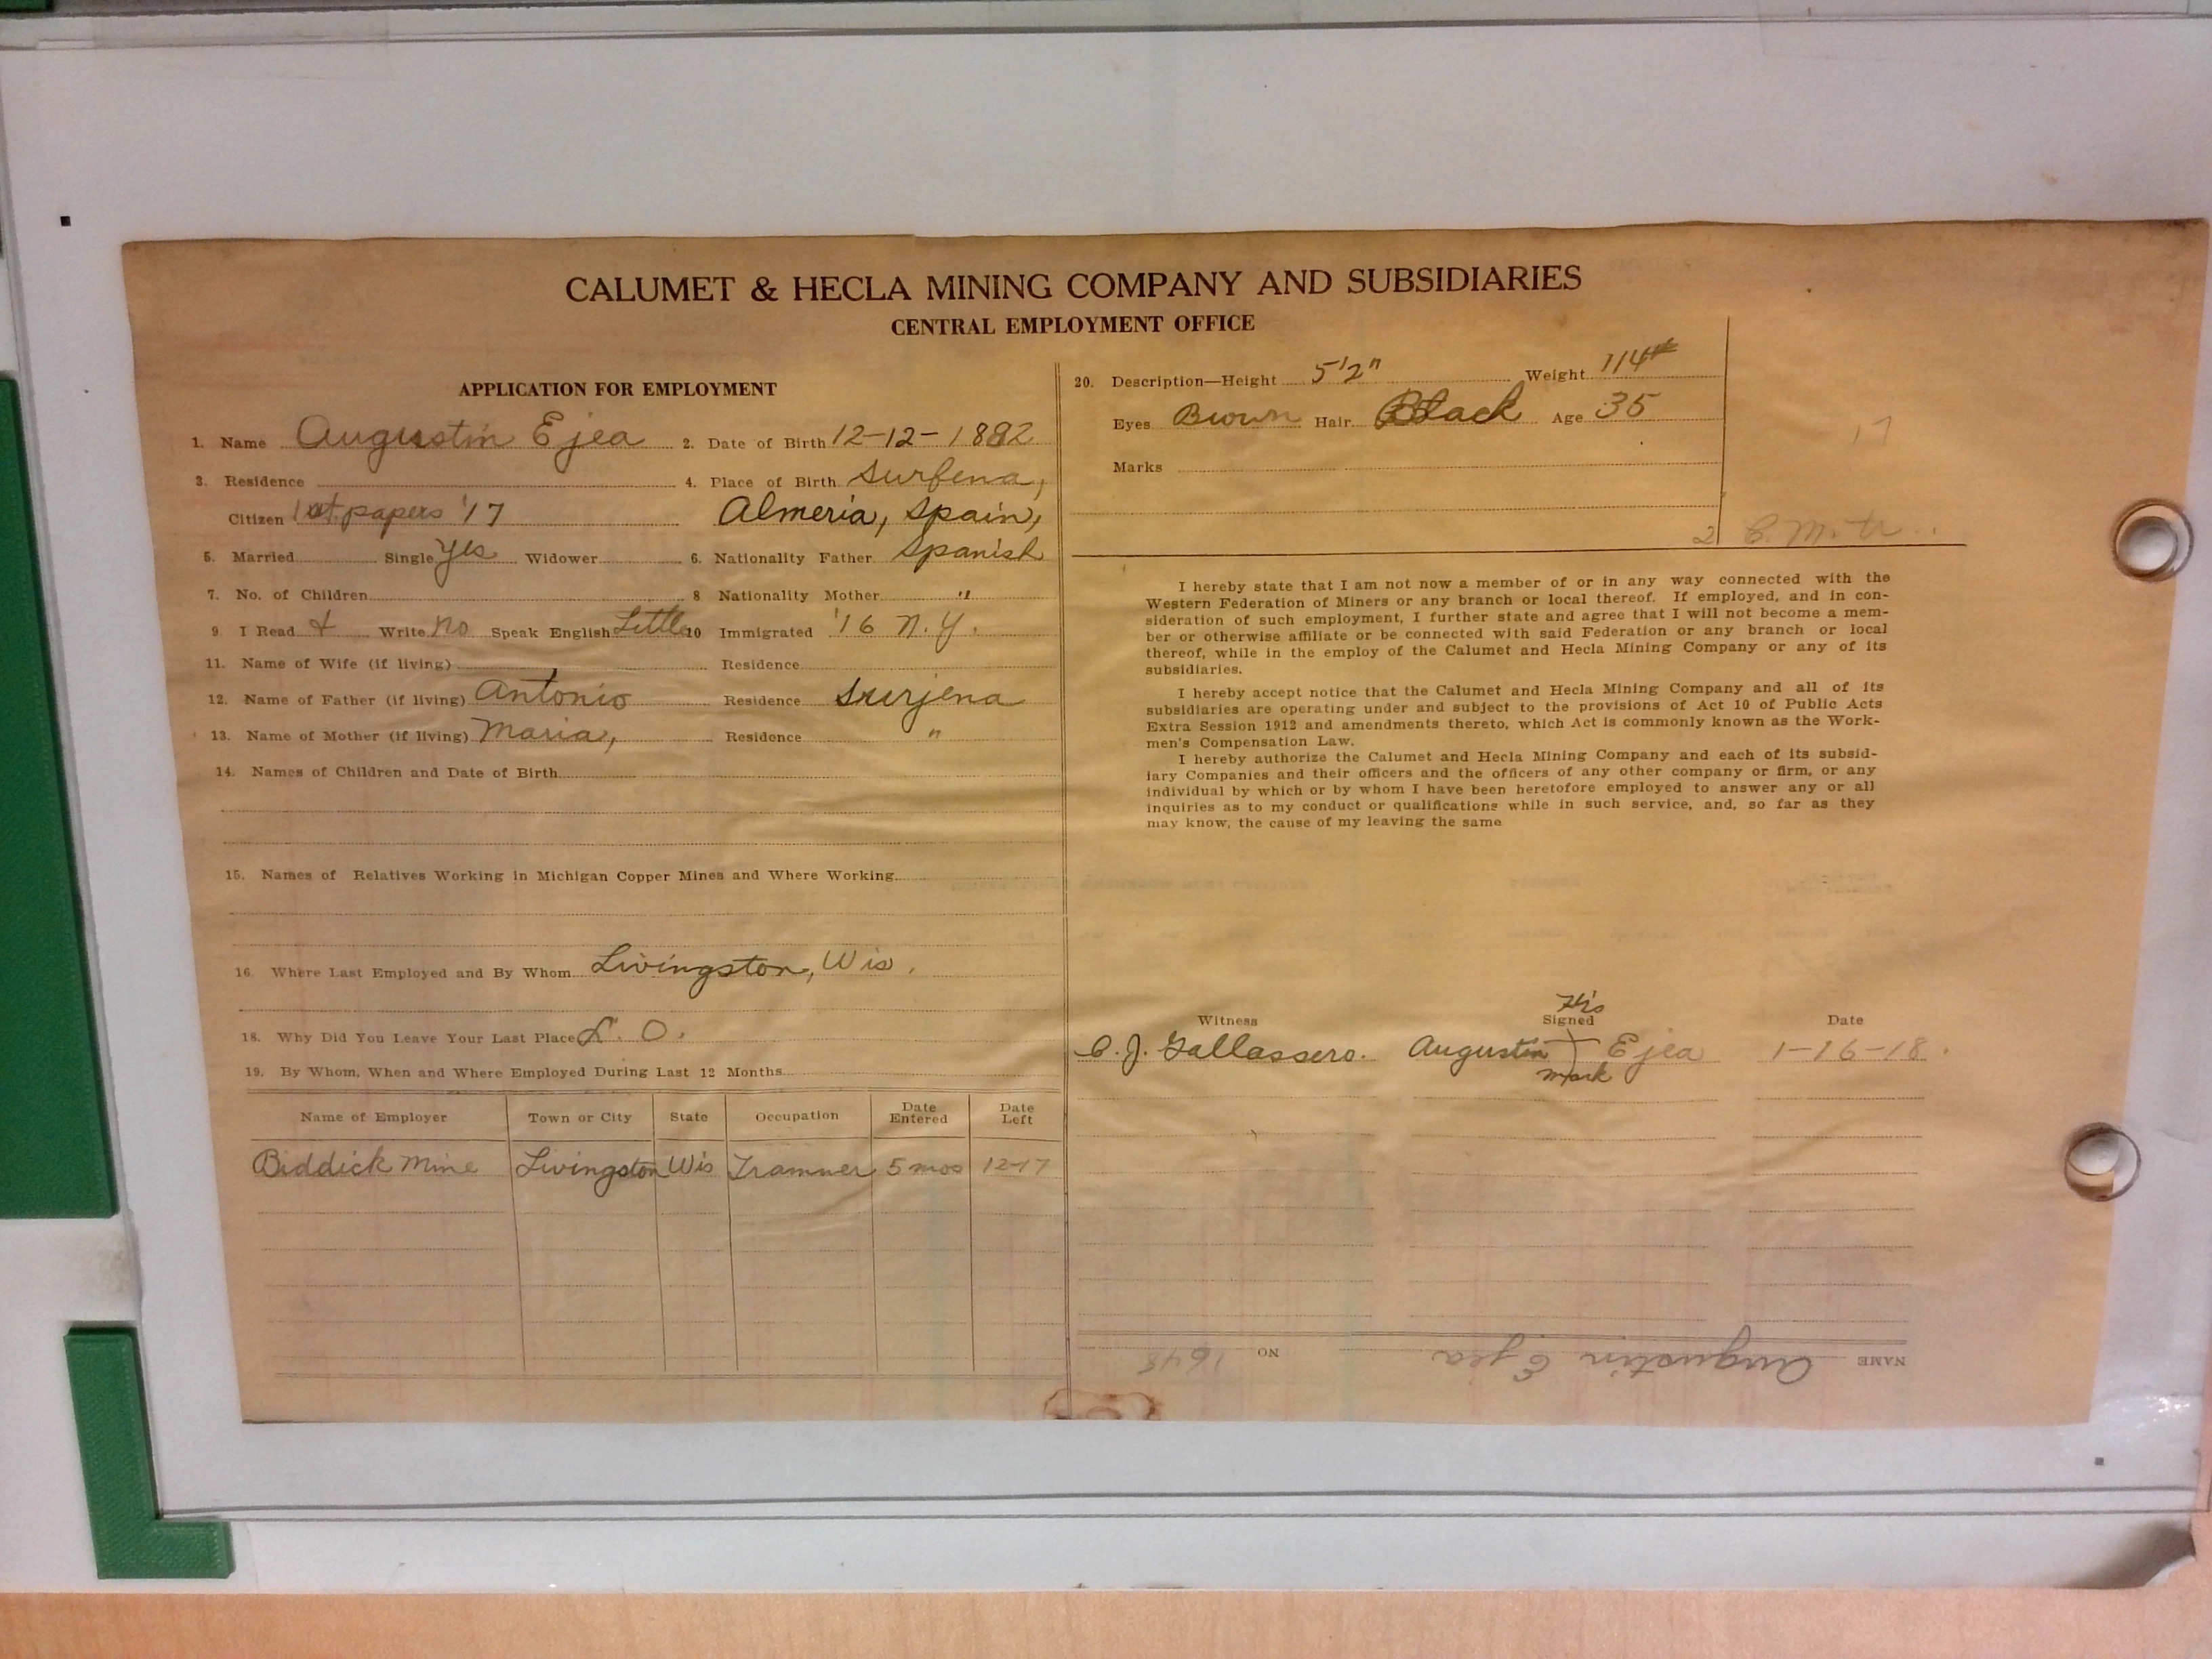 CALUMET & HECLA MINING COMPANY AND SUBSIDIARIES
CENTRAL EMPLOYMENT OFFICE
APPLICATION FOR EMPLOYMENT
1. Name Augustin Ejea 2. Date of Birth 12-12-1882
3. Residence 4. Place of Birth Surfena,
Citizen 1st papers '17 Almeria, Spain,
5. Married Single yes Widower 6. Nationality Father Spanish
7. No. of Children 8 Nationality Mother "
9 I Read & Write no Speak English Little 10 Immigrated '16 N.Y.
11. Name of Wife (if living) Residence
12. Name of Father (if living) Antonio Residence Surjena
13. Name of Mother (if living) Maria, Residence "
14. Names of Children and Date of Birth
15. Names of Relatives Working in Michigan Copper Mines and Where Working
16. Where Last Employed and By Whom Livingston, Wis.
18. Why Did You Leave Your Last Place L. O.
19. By Whom, When and Where Employed During Last 12 Months
Name of Employer Town or City State Occupation Date Entered Date Left
Biddick Mine Livingston Wis Trammer 5 mos 12-17
20. Description—Height 5'2" Weight 114#
Eyes Brown Hair Black Age 35
17
Marks
2
I hereby state that I am not now a member of or in any way connected with the
Western Federation of Miners or any branch or local thereof. If employed, and in con-
sideration of such employment, I further state and agree that I will not become a mem-
ber or otherwise affiliate or be connected with said Federation or any branch or local
thereof, while in the employ of the Calumet and Hecla Mining Company or any of its
subsidiaries.
I hereby accept notice that the Calumet and Hecla Mining Company and all of its
subsidiaries are operating under and subject to the provisions of Act 10 of Public Acts
Extra Session 1912 and amendments thereto, which Act is commonly known as the Work-
men's Compensation Law.
I hereby authorize the Calumet and Hecla Mining Company and each of its subsid-
iary Companies and their officers and the officers of any other company or firm, or any
individual by which or by whom I have been heretofore employed to answer any or all
inquiries as to my conduct or qualifications while in such service, and, so far as they
may know, the cause of my leaving the same
His
Witness Signed Date
C. J. Gallassero. Augustin Ejea 1-16-18.
mark
NAME Augustin Ejea NO 1648